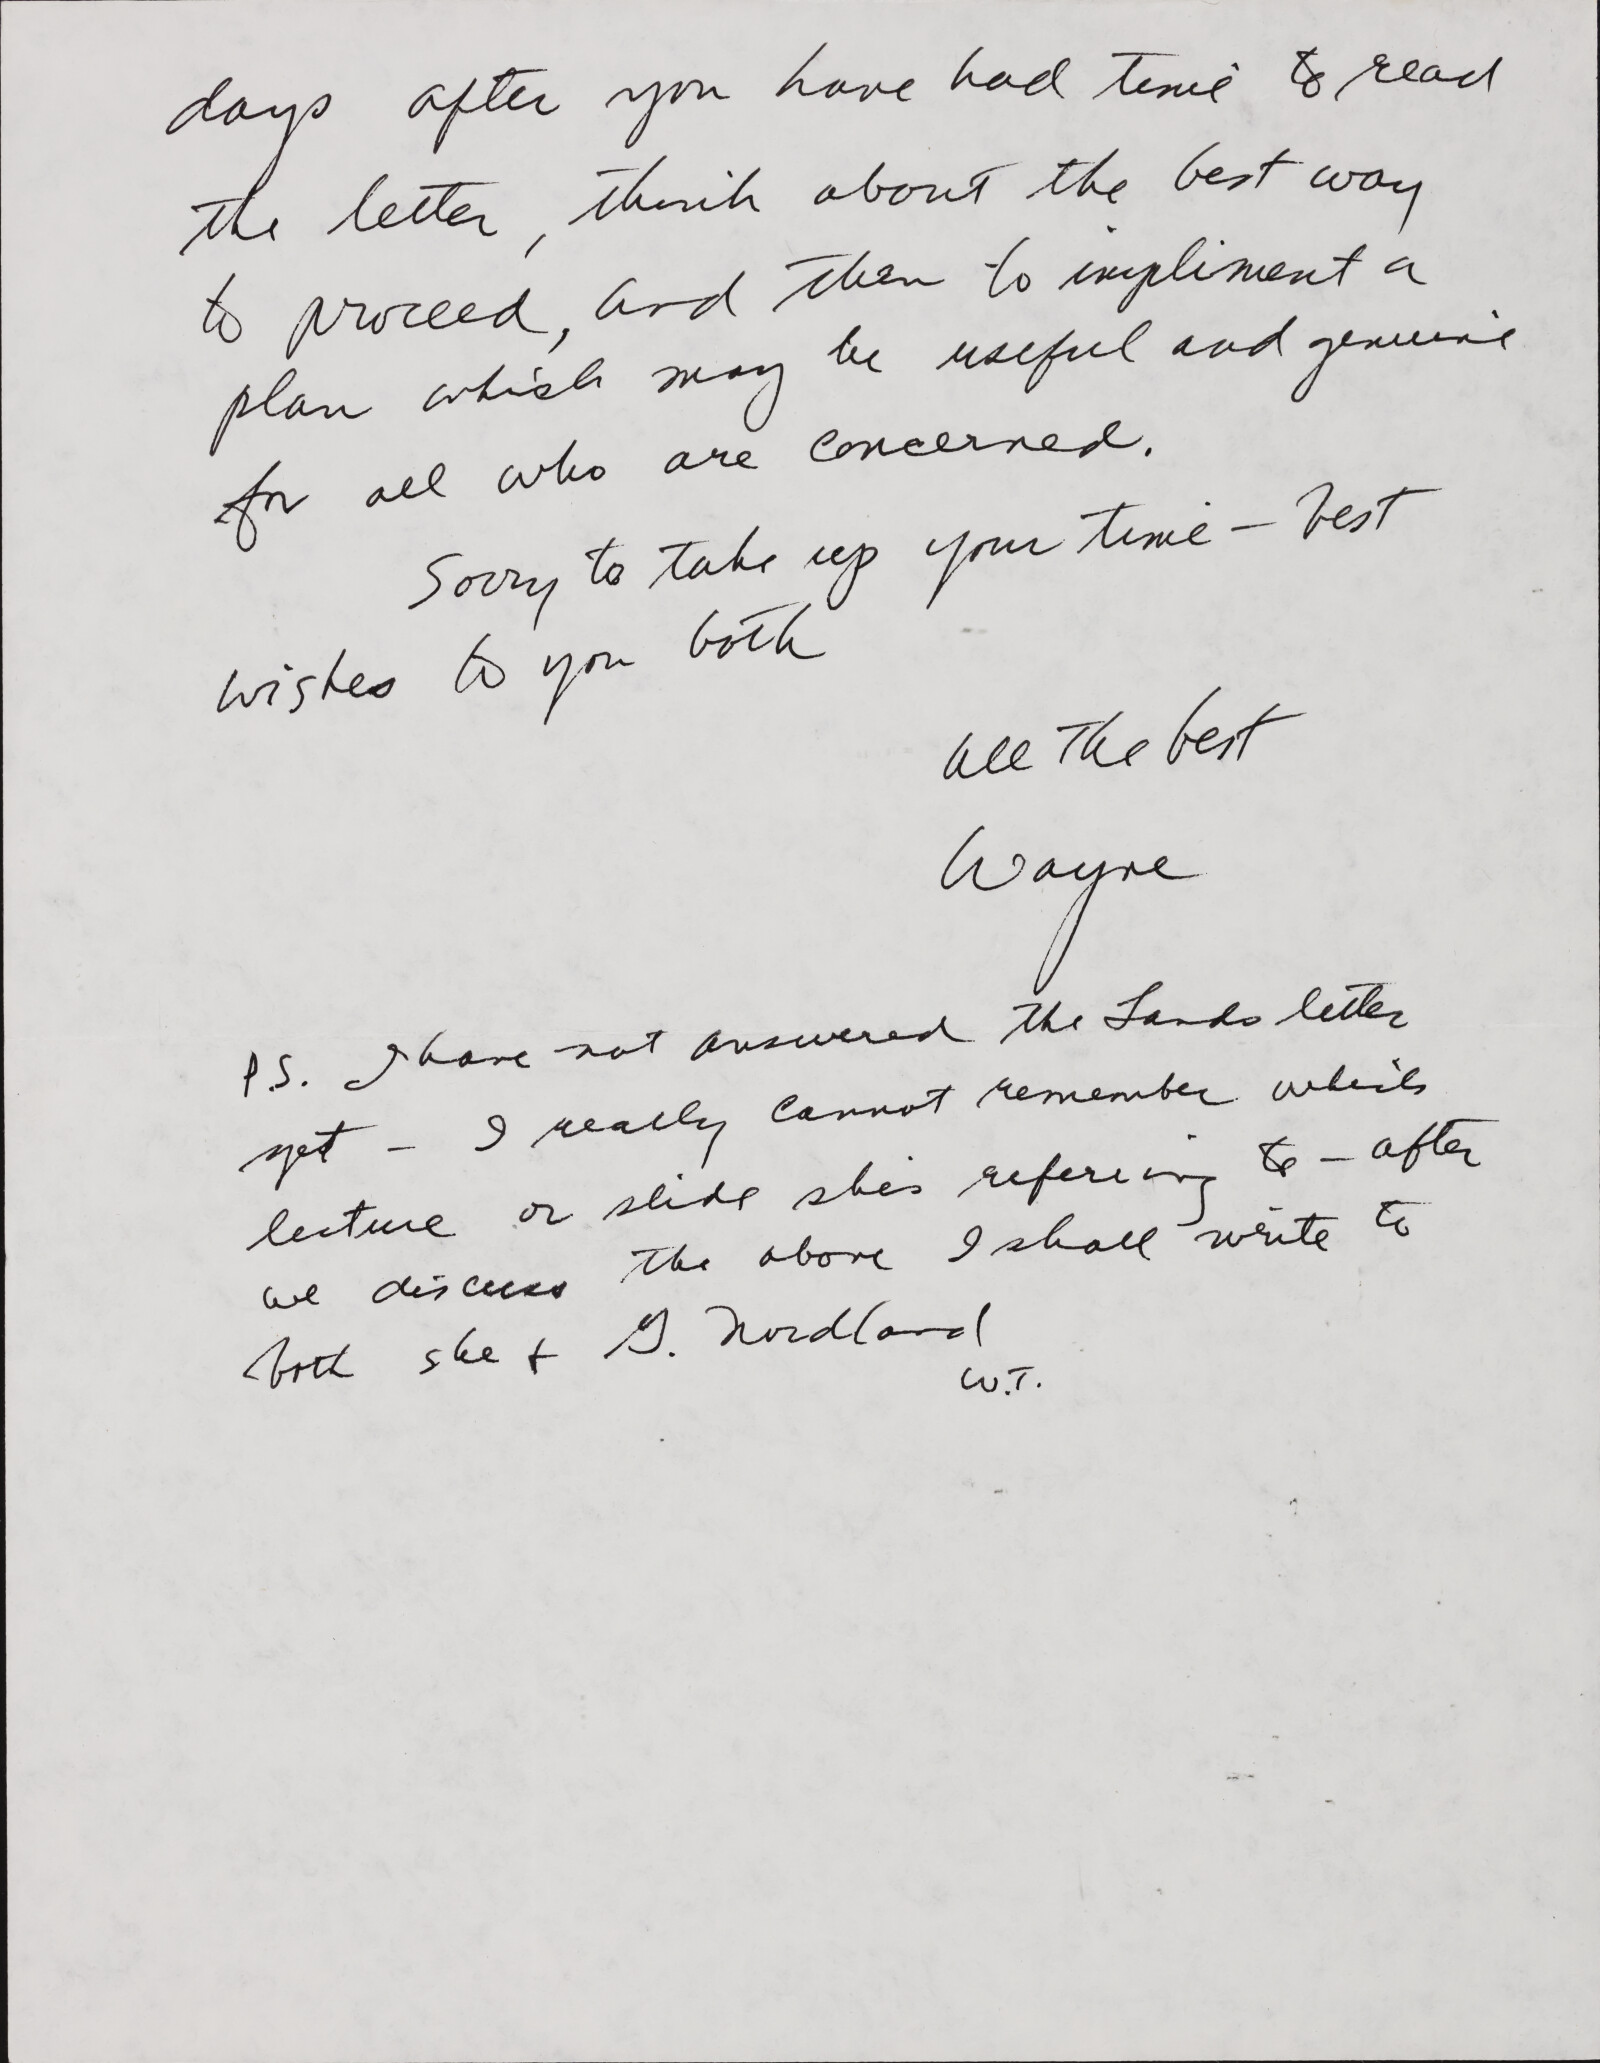 days after you have had time to read
the letter, think about the best way
to proceed, and then to impliment a
plan which may be useful and genuine
for all who are concerned.
Sorry to take up your time – best
wishes to you both
All the best
Wayne
P.S. I have not answered the Lando letter
yet – I really cannot remember which
lecture or slide she's refereing to – after
we discuss the above I shall write to
both she + G. Nordland
W.T.